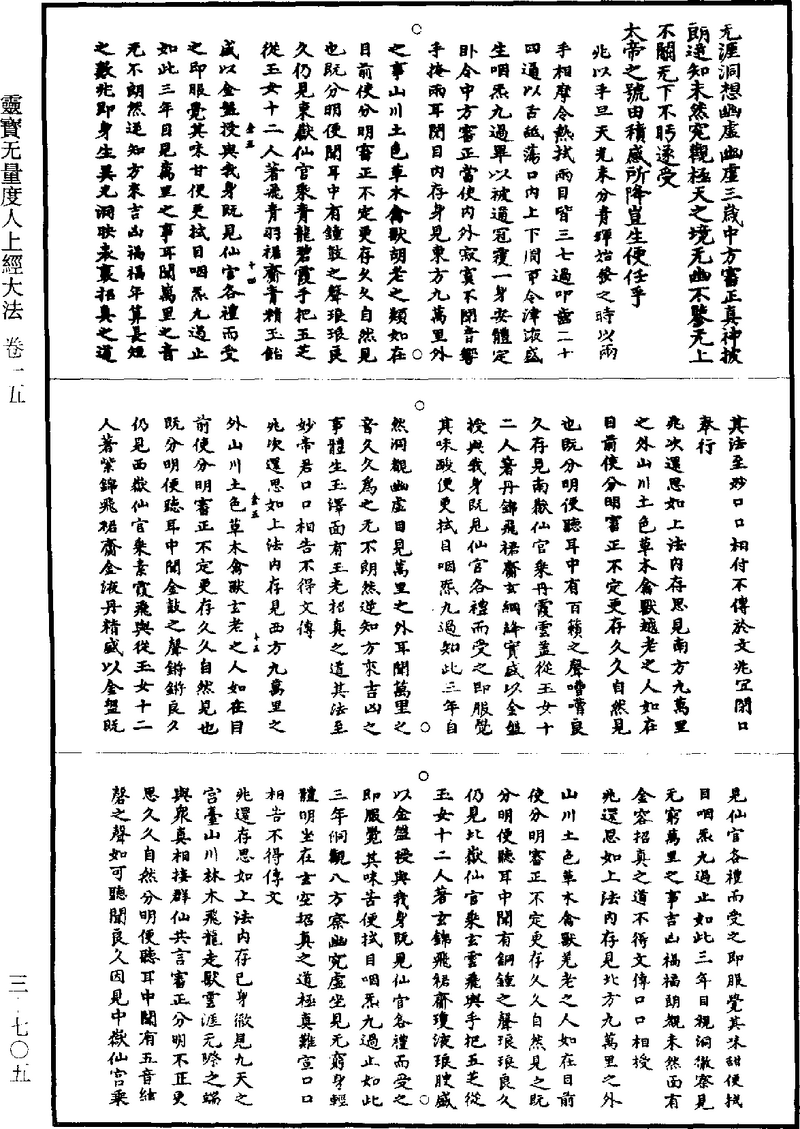 靈寶无量度人上經大法 卷一五
三·七〇五
无涯洞想幽虛幽虛三歲中方審正真神披
朗逆知未然究觀極天之境无幽不鑒无上
不關无下不眄遂受
太帝之號由積感所降豈生使任乎
兆以平旦天光未分青暉始發之時以兩
手相摩令熱拭兩目眥三七過叩齒二十
四通以舌舐蕩口內上下周帀令津液盛
生咽炁九過畢以被通冠覆一身安體定
卧令中方審正當使內外寂寞不聞音響
手掩兩耳閉目內存身見東方九萬里外
之事山川土色草木禽獸胡老之類如在
目前使分明審正不定更存久久自然見
也既分明便聞耳中有鐘鼓之聲琅琅良
久仍見東嶽仙官乘青龍碧霞手把五芝
從玉女十二人著飛青羽裙齎青精玉飴
盛以金盤授與我身既見仙官各禮而受
之即服覺其味甘便更拭目咽炁九過止
如此三年目見萬里之事耳聞萬里之音
无不朗然逆知方來吉凶禍福年算長短
之數兆即身生異光洞映表裏招真之道
其法至妙口口相付不傳於文兆宜閉口
奉行
兆次還思如上法內存思見南方九萬里
之外山川土色草木禽獸越老之人如在
目前使分明審正不定更存久久自然見
也既分明便聽耳中有百籟之聲嘈嘈良
久存見南嶽仙官乘丹霞雲蓋從玉女十
二人著丹錦飛裙齎玄絪絳實盛以金盤
授與我身既見仙官各禮而受之即服覺
其味酸便更拭目咽炁九過知此三年自
然洞觀幽虛目見萬里之外耳聞萬里之
音久久為之无不朗然逆知方來吉凶之
事體生玉澤面有玉光招真之道其法至
妙帝君口口相告不得文傳
兆次還思如上法內存見西方九萬里之
外山川土色草木禽獸玄老之人如在目
前使分明審正不定更存久久自然見也
既分明便聽耳中聞金鼓之聲鏘鏘良久
仍見西嶽仙官乘素霞飛輿從玉女十二
人著紫錦飛裙齎金液丹精盛以金盤既
見仙官各禮而受之即服覺其味甜便拭
目咽炁九過止如此三年目視洞徹察見
无窮萬里之事吉凶禍福朗覩未然面有
金容招真之道不得文傳口口相授
兆還思如上法內存見北方九萬里之外
山川土色草木禽獸羌老之人如在目前
使分明審正不定更存久久自然見之既
分明便聽耳中聞有銅鍾之聲琅琅良久
仍見北嶽仙官乘玄雲飛輿手把五芝從
玉女十二人著玄錦飛裙齎瓊液琅膄盛
以金盤授與我身既見仙官各禮而受之
即服覺其味苦便拭目咽炁九過止如此
三年洞觀八方察幽究虛坐見无窮身輕
體明坐在玄空招真之道極真難宣口口
相告不得傳文
兆還存思如上法內存已身徹見九天之
宮臺山川林木飛龍走獸雲涯无際之端
與眾真相接群仙共言審正分明不正更
思久久自然分明便聽耳中聞有五音絃
磬之聲如可聽聞良久因見中嶽仙官乘